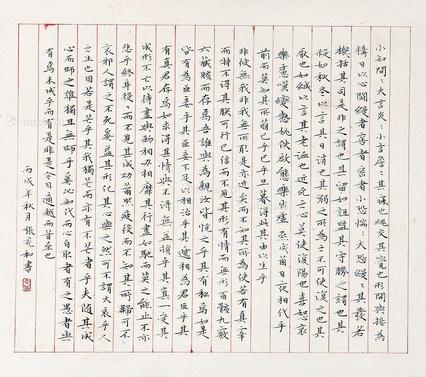 小知閒〻大言炎〻小言詹〻其寐也魂交其覺也形開與接為
構日以心鬪縵者窖者密者小恐惴〻大恐縵〻其發若
機栝其司是非之謂也其留如詛盟其守勝之謂也其
殺如秋冬以言其日消也其溺之所為之不可使復之也其
厭也如緘以言其老洫也近死之心莫使復陽也喜怒哀
樂慮嘆變慹姚佚啟態樂出虛蒸成菌日夜相代乎
前而莫知其所萌已乎已乎旦暮得此其由以生乎
非彼無我非我無所取是亦近矣而不知其所為使若有真宰
而特不得其眹可行已信而不見其形有情而無形百骸九竅
六藏賅而存焉吾誰與為親汝皆悅之乎其有私焉如是
皆有為臣妾乎其臣妾不足以相治乎其遞相為君臣乎其
有真君存焉如求得其情與不得無益損乎其真一受其
成形不亡以待盡與物相刃相靡其行盡如馳而莫之能止不亦
悲乎終身役〻而不見其成功苶然疲役而不知其所歸可不
哀邪人謂之不死奚益其形化其心與之然可不謂大哀乎人
之生也固若是芒乎其我獨芒而亦有不芒者乎夫隨其成
心而師之誰獨且無師乎奚必知代而心自取者有之愚者與
有焉未成乎而有是非是今日適越而昔至也
丙戌年秋月張充和書